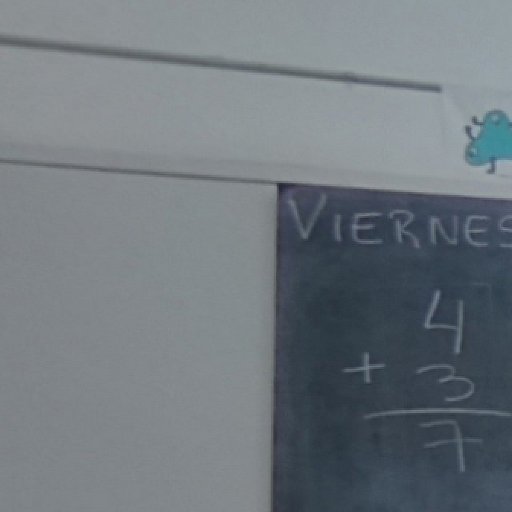 VIERNES
4
+ 3
7